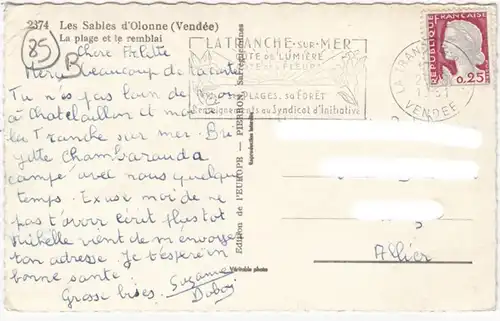 2374 Les Sables d'Olonne (Vendée)
La plage et le remblai
85
Chère
Merci Beaucoup de ta carte
Tu n'es pas loin de
à Chatelaillon et moi à
La Tranche sur mer. Bri
gitte Chambarauda
campe avec nous quelque
temps. Excuse moi de ne
pas t'avoir écrit plus tot
Michelle vient de m'envoyer
ton adresse. Je t'espère en
bonne santé.
Grosse bises. Suzanne
Duboj
Edition de l'EUROPE — PIERRON, Sarreguemines
Reproduction interdite
Véritable photo
LA TRANCHE-SUR-MER
CÔTE DE LUMIÈRE
PLAGES, SA FORÊT
Renseignements au Syndicat d'Initiative
LA TRANCHE
VENDEE
REPUBLIQUE FRANÇAISE
0,25
Allier